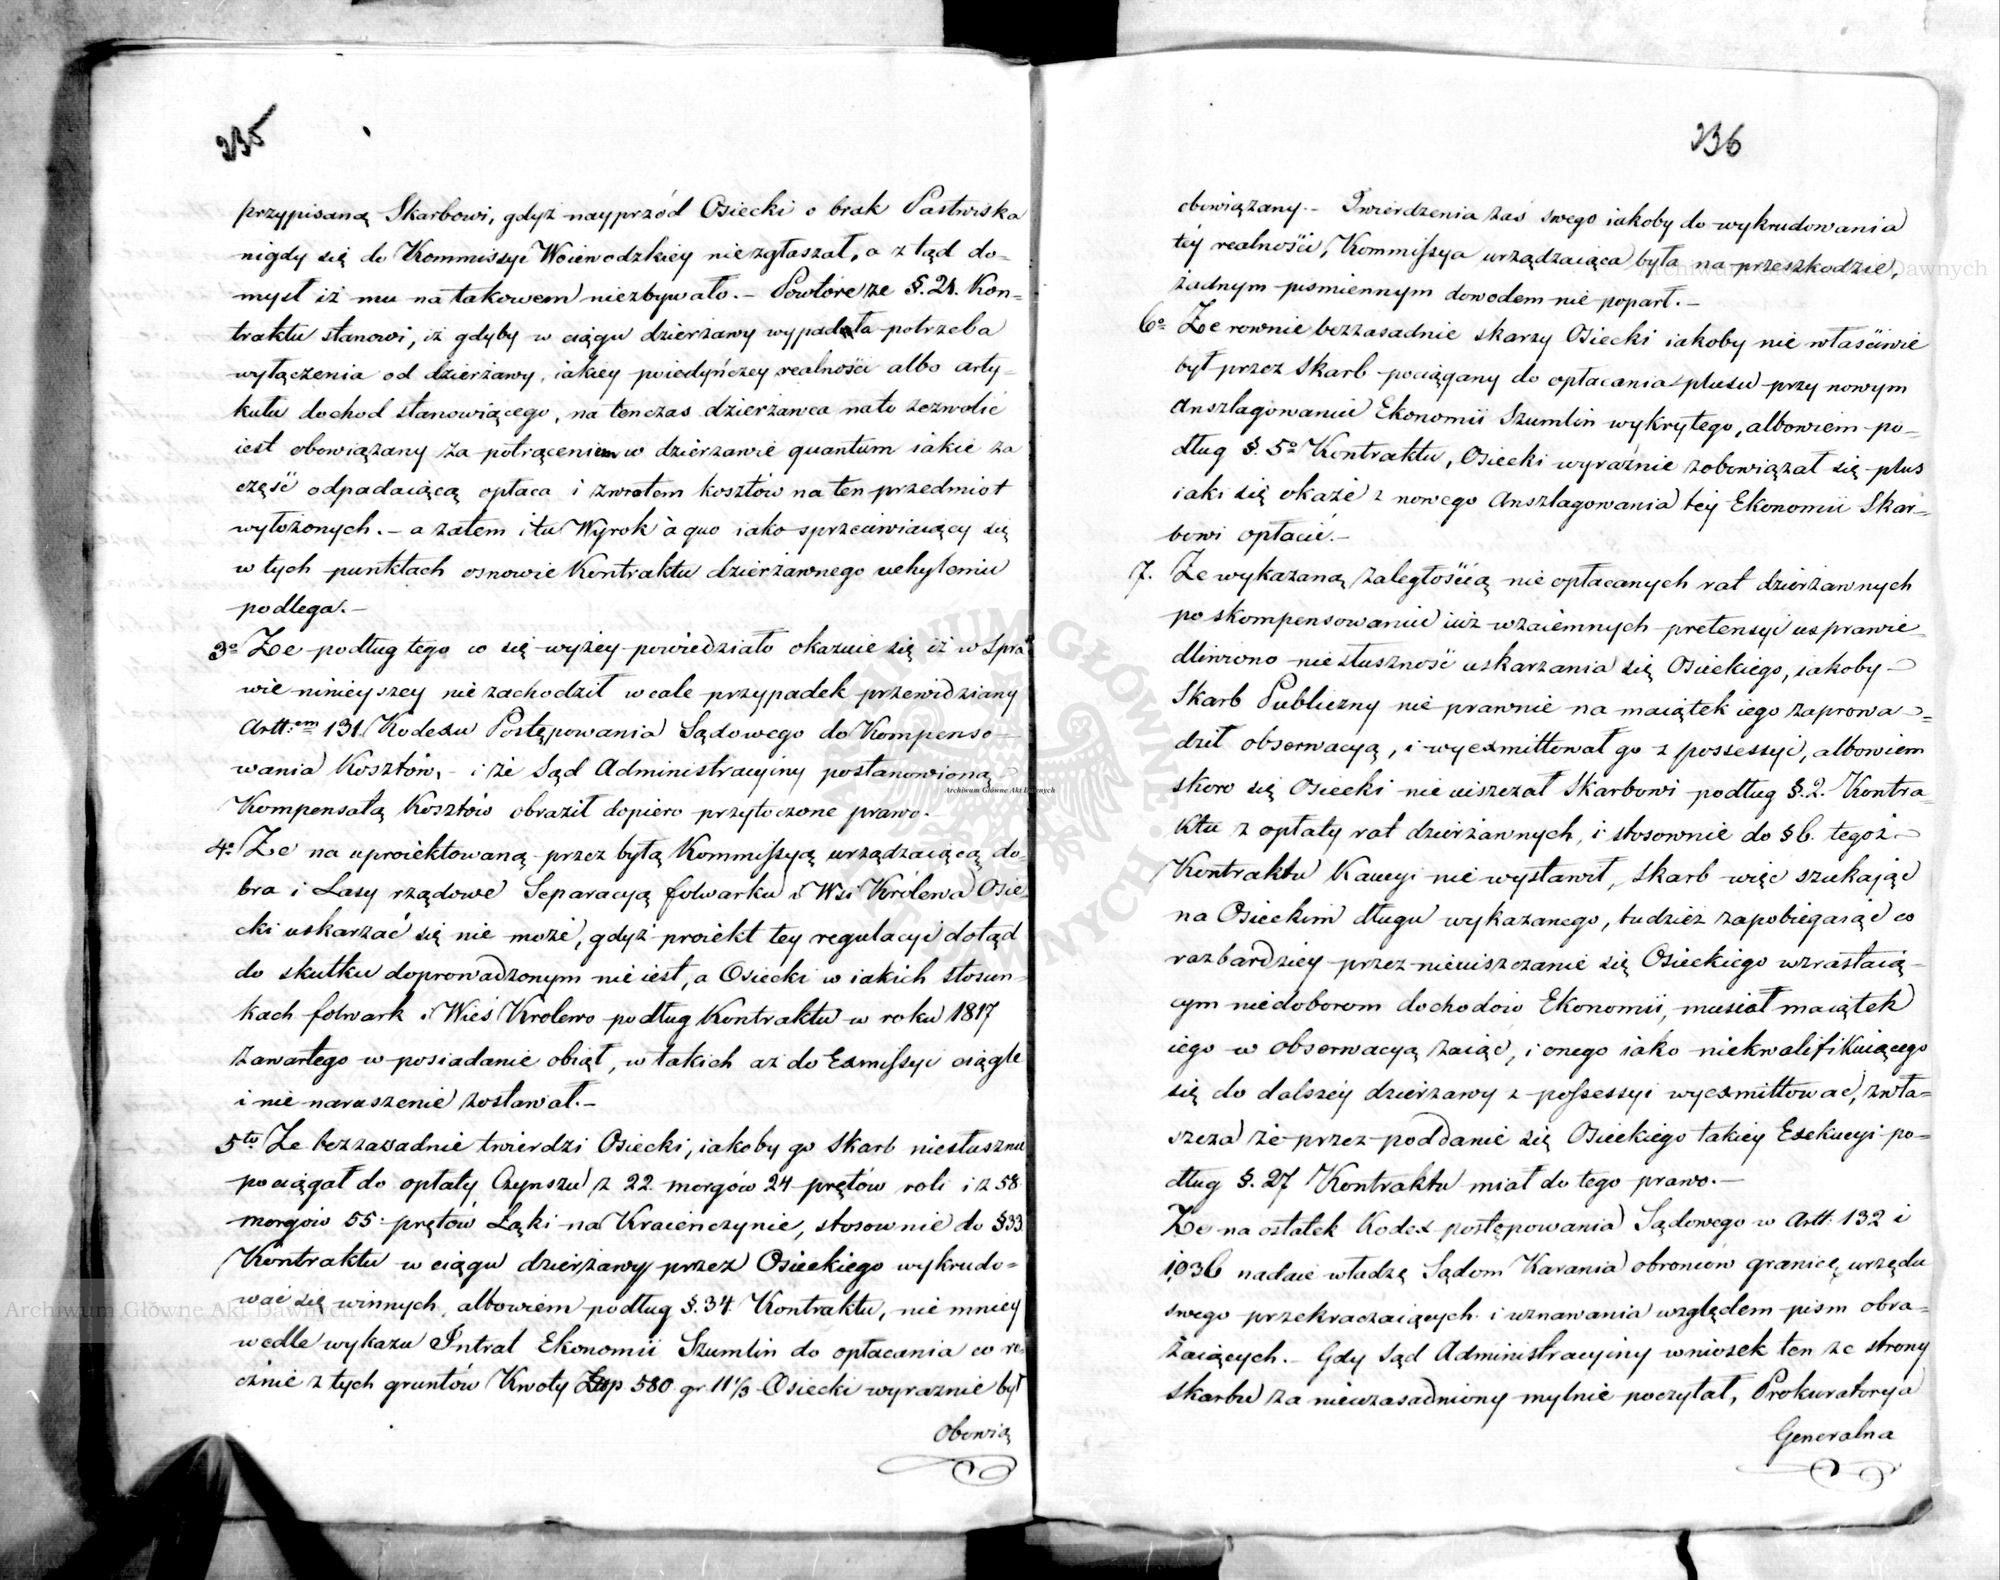 235
przypisaną Skarbowi, gdyż nayprzód Osiecki o brak Pastwiska
nigdy się do Kommissyi Woiewodzkiey niezgłaszał, a z tąd do=
mysł iż mu na takowem niezbywało. – Powtóre ze §. 21. Kon=
traktu stanowi, iż gdyby w ciągu dzierżawy wypadała potrzeba
wyłączenia od dzierżawy, iakiey poiedyńczey realności albo arty-
kułu dochod stanowiącego, na tenczas dzierżawca na to zezwolić
iest obowiązany za potrąceniem w dzierżawie quantum iakie za
część odpadaiącą opłaca i zwrotem kosztów na ten przedmiot
wyłożonych. – a zatem i tu Wyrok à quo iako sprzeciwiaiący się
w tych punktach osnowie Kontraktu dzierżawnego uchyleniu
podlega. –
3o Ze podług tego co się wyżey powiedziało okazuie się iż w Spra
wie ninieyszey nie zachodził wcale przypadek przewidziany
Artt:em 131. Kodexu Postępowania Sądowego do Kompenso-
wania Kosztów, – i że Sąd Administracyiny postanowioną
Kompensatą Kosztów obraził dopiero przytoczone prawo. –
4o Ze na uproiektowaną przez byłą Kommissyą urządzaiącą do-
bra i Lasy rządowe Separacyą folwarku i Wsi Królewa Osie-
cki uskarzać się nie może, gdyż proiekt tey regulacyi dotąd
do skutku doprowadzonym nie iest, a Osiecki w iakich stosun-
kach folwark i Wieś Krolewo podług Kontraktu w roku 1817
zawartego w posiadanie obiął, w takich aż do Exmissyi ciągle
i nie naruszenie zostawał. –
5to Ze bezzasadnie twierdzi Osiecki, iakoby go Skarb niesłusznie
pociągał do opłaty Czynszu z 22 morgów 24 prętów roli i z 58
morgów 55: prętów Łąki na Kraieńczynie, stosownie do §33
Kontraktu w ciągu dzierżawy przez Osieckiego wykrudo=
wać się winnych, albowiem podług §. 34 Kontraktu, nie mniey
wedle wykazu Intrat Ekonomii Szumlin do opłacania co ro-
cznie z tych gruntów Kwoty Złp 580 gr 11 1/3 Osiecki wyraznie był
Obowią
236
obowiązany. – Twierdzenia zaś swego iakoby do wykrudowania
téy realności, Kommissya urządzaiąca była na przeszkodzie,
żadnym pismiennym dowodem nie poparł. –
6o Ze rownie bezzasadnie skarzy Osiecki iakoby nie właściwie
był przez Skarb pociągany do opłacania plusu przy nowym
Anszlagowaniu Ekonomii Szumlin wykrytego, albowiem po-
dług §. 5o Kontraktu, Osiecki wyraźnie zobowiązał się plus
iaki się okaże z nowego Anszlagowania téy Ekonomii Skar-
bowi opłacić. –
7. Ze wykazaną zaległością nie opłacanych rat dzierżawnych
po skompensowaniu iuż wzaiemnych pretensyi usprawie-
dliwiono niesłuszność uskarzania się Osieckiego, iakoby
Skarb Publiczny nie prawnie na maiątek iego zaprowa=
dził obserwacyą, i wyexmittował go z possessyi, albowiem
skoro się Osiecki nie uiszczał Skarbowi podług §. 2. Kontra-
ktu z opłaty rat dzierżawnych, i stosownie do § 6. tegoż
Kontraktu Kaucyi nie wystawił, Skarb więc szukaiąc
na Osieckim długu wykazanego, tudzież zapobiegaiąc co
raz bardziey przez nieuiszczanie się Osieckiego wzrastaią-
cym niedoborom dochodów Ekonomii, musiał maiątek
iego w obserwacyą zaiąć, i onego iako niekwalifikuiącego
się do dalszéy dzierżawy z possessyi wyexmittować, zwła-
szcza że przez poddanie się Osieckiego takiey Exekucyi po-
dług §. 27 Kontraktu miał do tego prawo. –
Ze na ostatek Kodex postępowania Sądowego w Artt: 132 i
1,036 nadaie władzę Sądom Karania obrońców granicę urzędu
swego przekraczaiących i uznawania względem pism obra-
żaiących. – Gdy Sąd Administracyiny wniosek ten ze strony
Skarbu za nieuzasadniony mylnie poczytał, Prokuratorya
Generalna
Archiwum Główne Akt Dawnych